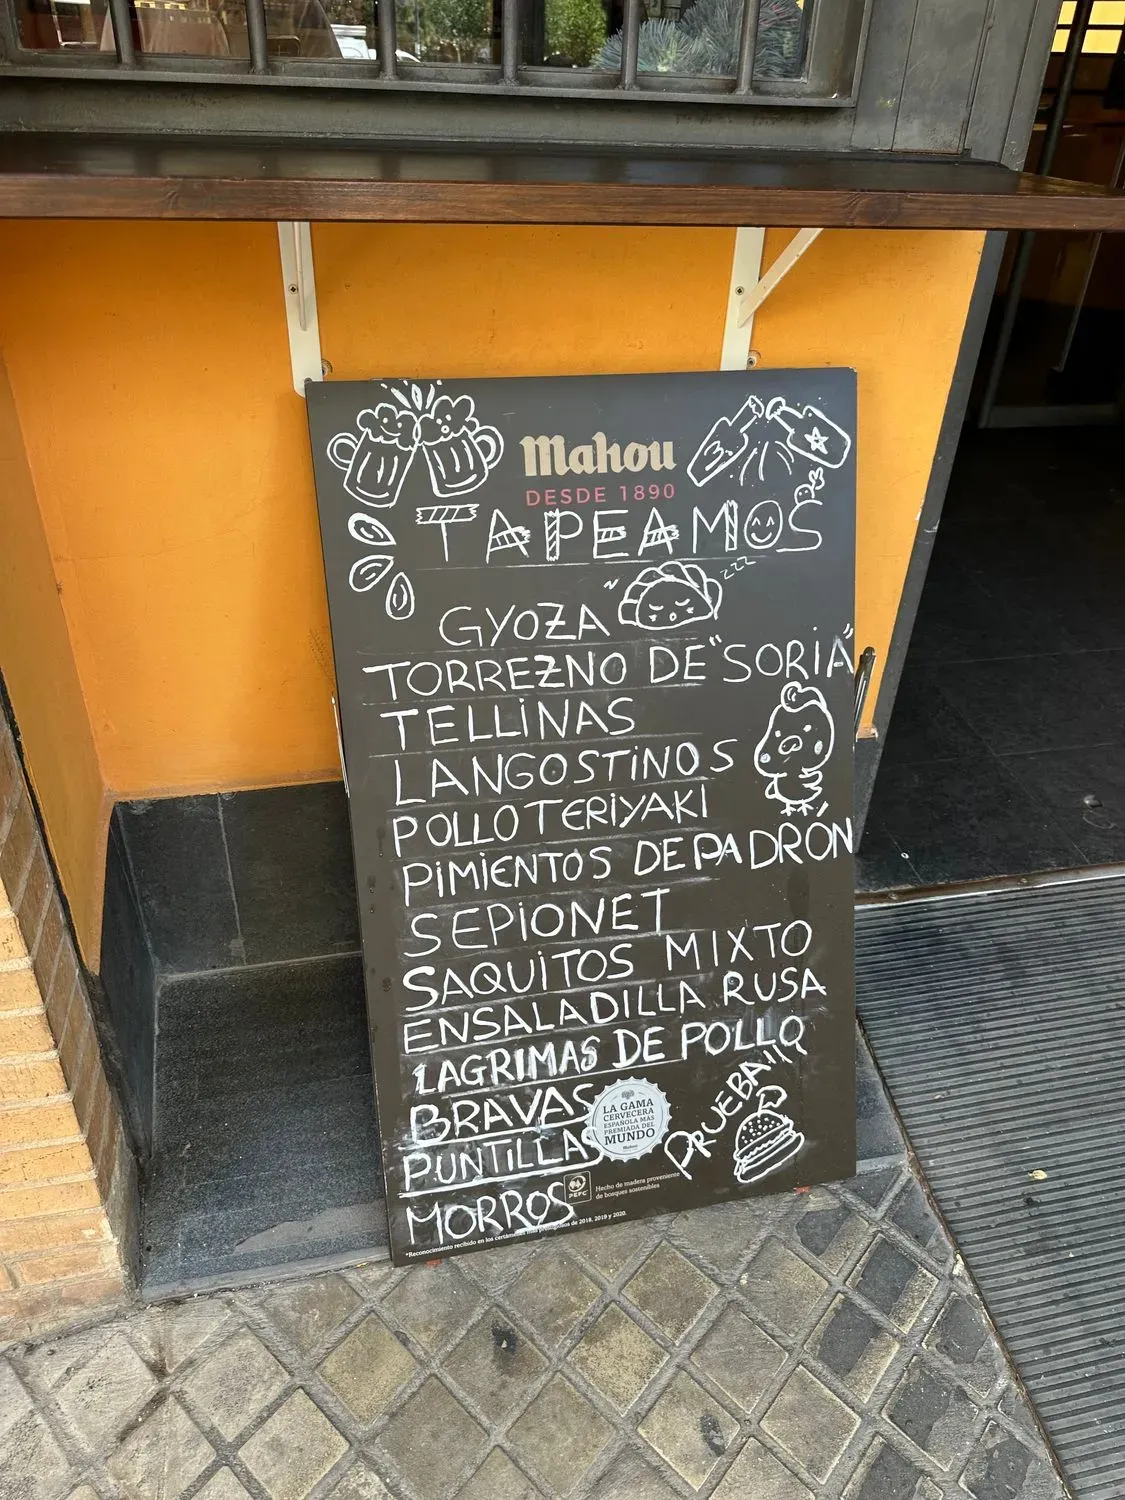 Mahou
DESDE 1890
TAPEAMOS
zzz
GYOZA
TORREZNO DE "SORIA"
TELLINAS
LANGOSTINOS
POLLO TERIYAKI
PIMIENTOS DE PADRON
SEPIONET
SAQUITOS MIXTO
ENSALADILLA RUSA
LAGRIMAS DE POLLO
BRAVAS
PUNTILLAS
MORROS
PRUEBA!!!
LA GAMA
CERVECERA
ESPAÑOLA MÁS
PREMIADA DEL
MUNDO
Mahou
PEFC
Hecho de madera proveniente
de bosques sostenibles
*Reconocimiento recibido en los certámenes más prestigiosos de 2018, 2019 y 2020.